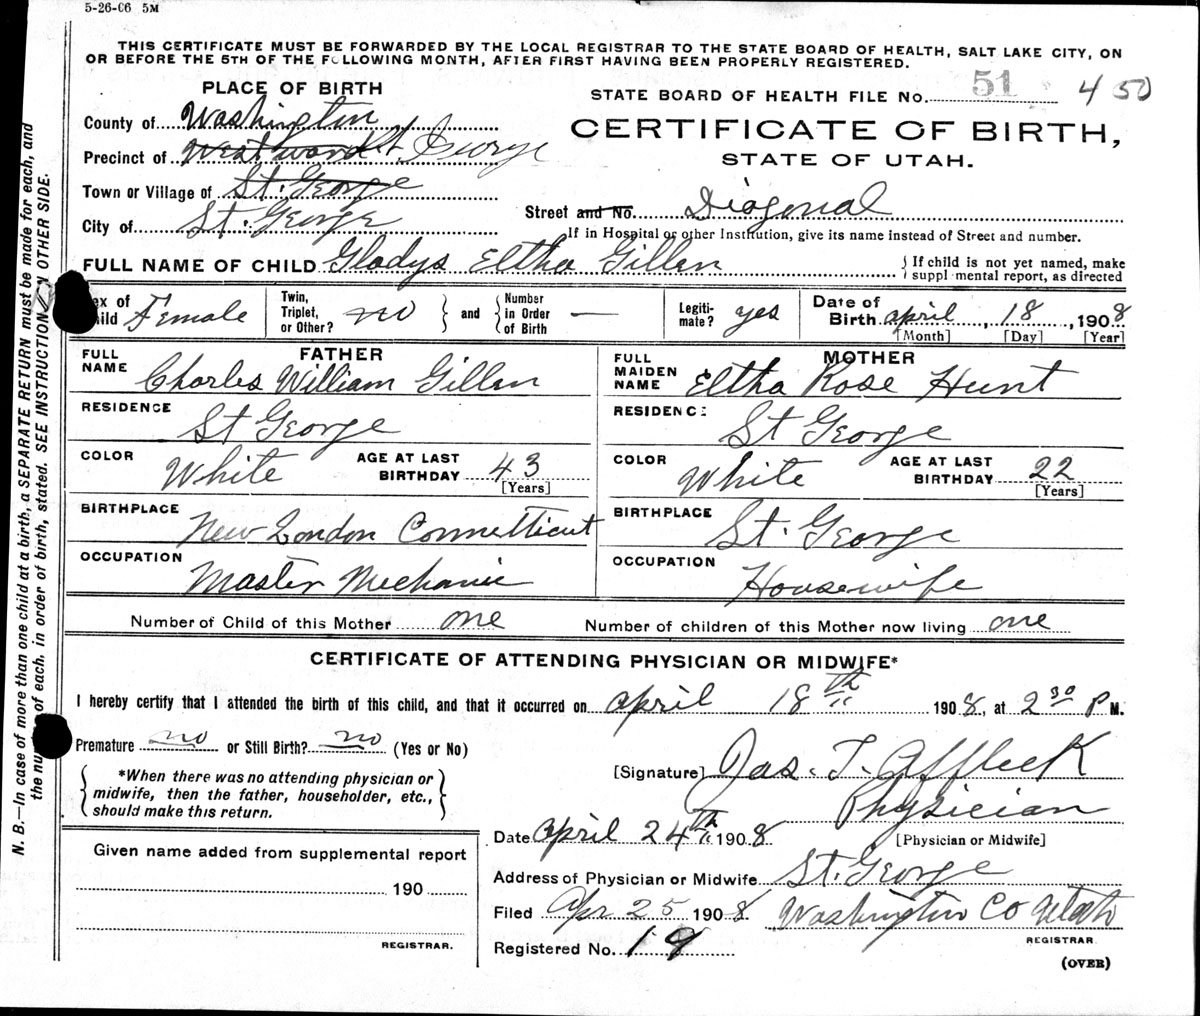 5-26-06 5M
THIS CERTIFICATE MUST BE FORWARDED BY THE LOCAL REGISTRAR TO THE STATE BOARD OF HEALTH, SALT LAKE CITY, ON
OR BEFORE THE 5TH OF THE FOLLOWING MONTH, AFTER FIRST HAVING BEEN PROPERLY REGISTERED.
PLACE OF BIRTH
STATE BOARD OF HEALTH FILE No. 51 450
County of Washington
CERTIFICATE OF BIRTH,
Precinct of West ward St. George
STATE OF UTAH.
Town or Village of St. George
Street and No. Diagonal
City of St. George
If in Hospital or other Institution, give its name instead of Street and number.
FULL NAME OF CHILD Gladys Eltha Gillen
If child is not yet named, make
suppl mental report, as directed
Sex of Child Female
Twin, Triplet, or Other? no
and Number in Order of Birth —
Legitimate? yes
Date of Birth April, 18, 1908
[Month] [Day] [Year]
FATHER
FULL NAME Charles William Gillen
RESIDENCE St George
COLOR White AGE AT LAST BIRTHDAY 43
[Years]
BIRTHPLACE New London Connetticut
OCCUPATION Master Mechanic
MOTHER
FULL MAIDEN NAME Eltha Rose Hunt
RESIDENCE St George
COLOR White AGE AT LAST BIRTHDAY 22
[Years]
BIRTHPLACE St. George
OCCUPATION Housewife
Number of Child of this Mother one Number of children of this Mother now living one
CERTIFICATE OF ATTENDING PHYSICIAN OR MIDWIFE*
I hereby certify that I attended the birth of this child, and that it occurred on April 18th 1908, at 2 30 P M.
Premature no or Still Birth? no (Yes or No)
*When there was no attending physician or
midwife, then the father, householder, etc.,
should make this return.
[Signature] Jas. T. Affleck
Physician
Date April 24th 1908 [Physician or Midwife]
Given name added from supplemental report
190
REGISTRAR.
Address of Physician or Midwife St. George
Filed Apr 25 1908 Washington Co Utah
REGISTRAR
Registered No. 19
(OVER)
N. B.—In case of more than one child at a birth, a SEPARATE RETURN must be made for each, and
the nu of each, in order of birth, stated. SEE INSTRUCTION ON OTHER SIDE.